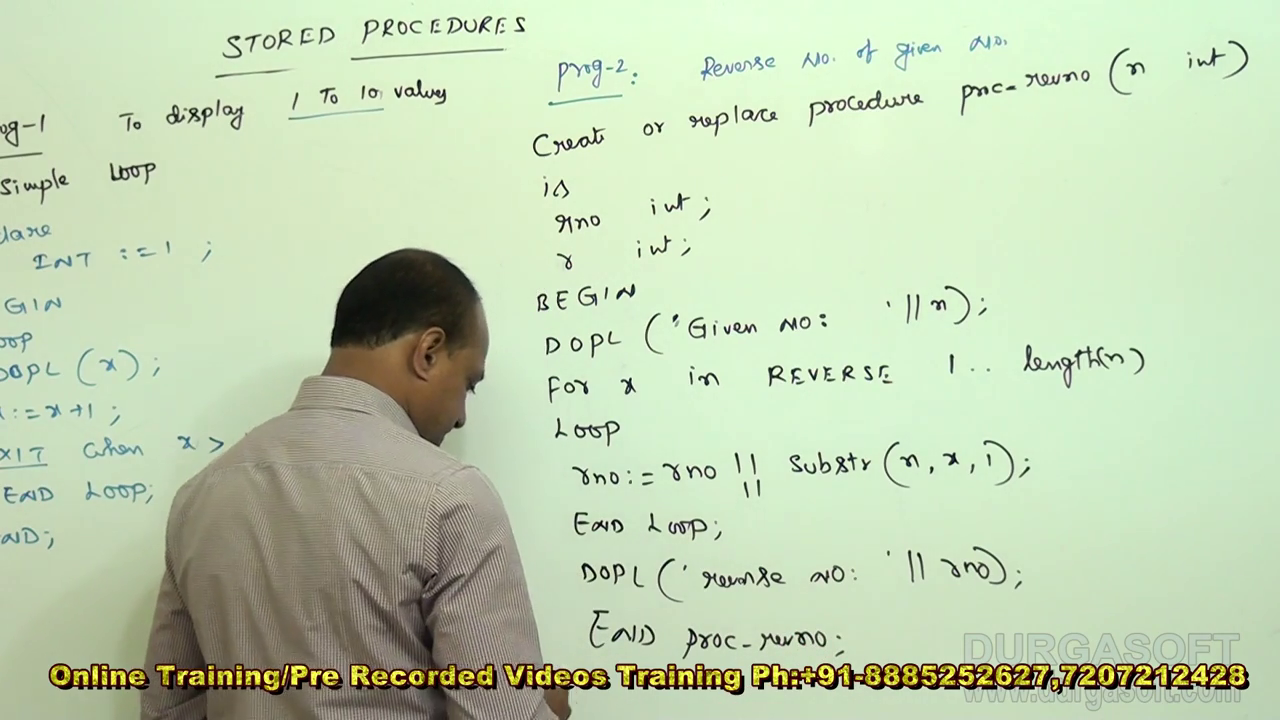 STORED PROCEDURES
og-1 To display 1 To 10 values
Simple Loop
lare
INT := 1 ;
GIN
oop
DOPL (x) ;
:= x+1 ;
XIT when x >
END LOOP;
ND;
Prog-2: Reverse No. of given No.
Create or replace procedure proc-revno (n int)
is
rno int ;
r int ;
BEGIN
DOPL ('Given NO: ' || n) ;
For x in REVERSE 1 .. length(n)
Loop
rno := rno || substr (n, x, 1) ;
||
End Loop;
DOPL (' reverse NO: ' || rno) ;
End proc-revno ;
DURGASOFT
www.durgasoft.com
Online Training/Pre Recorded Videos Training Ph:+91-8885252627,7207212428